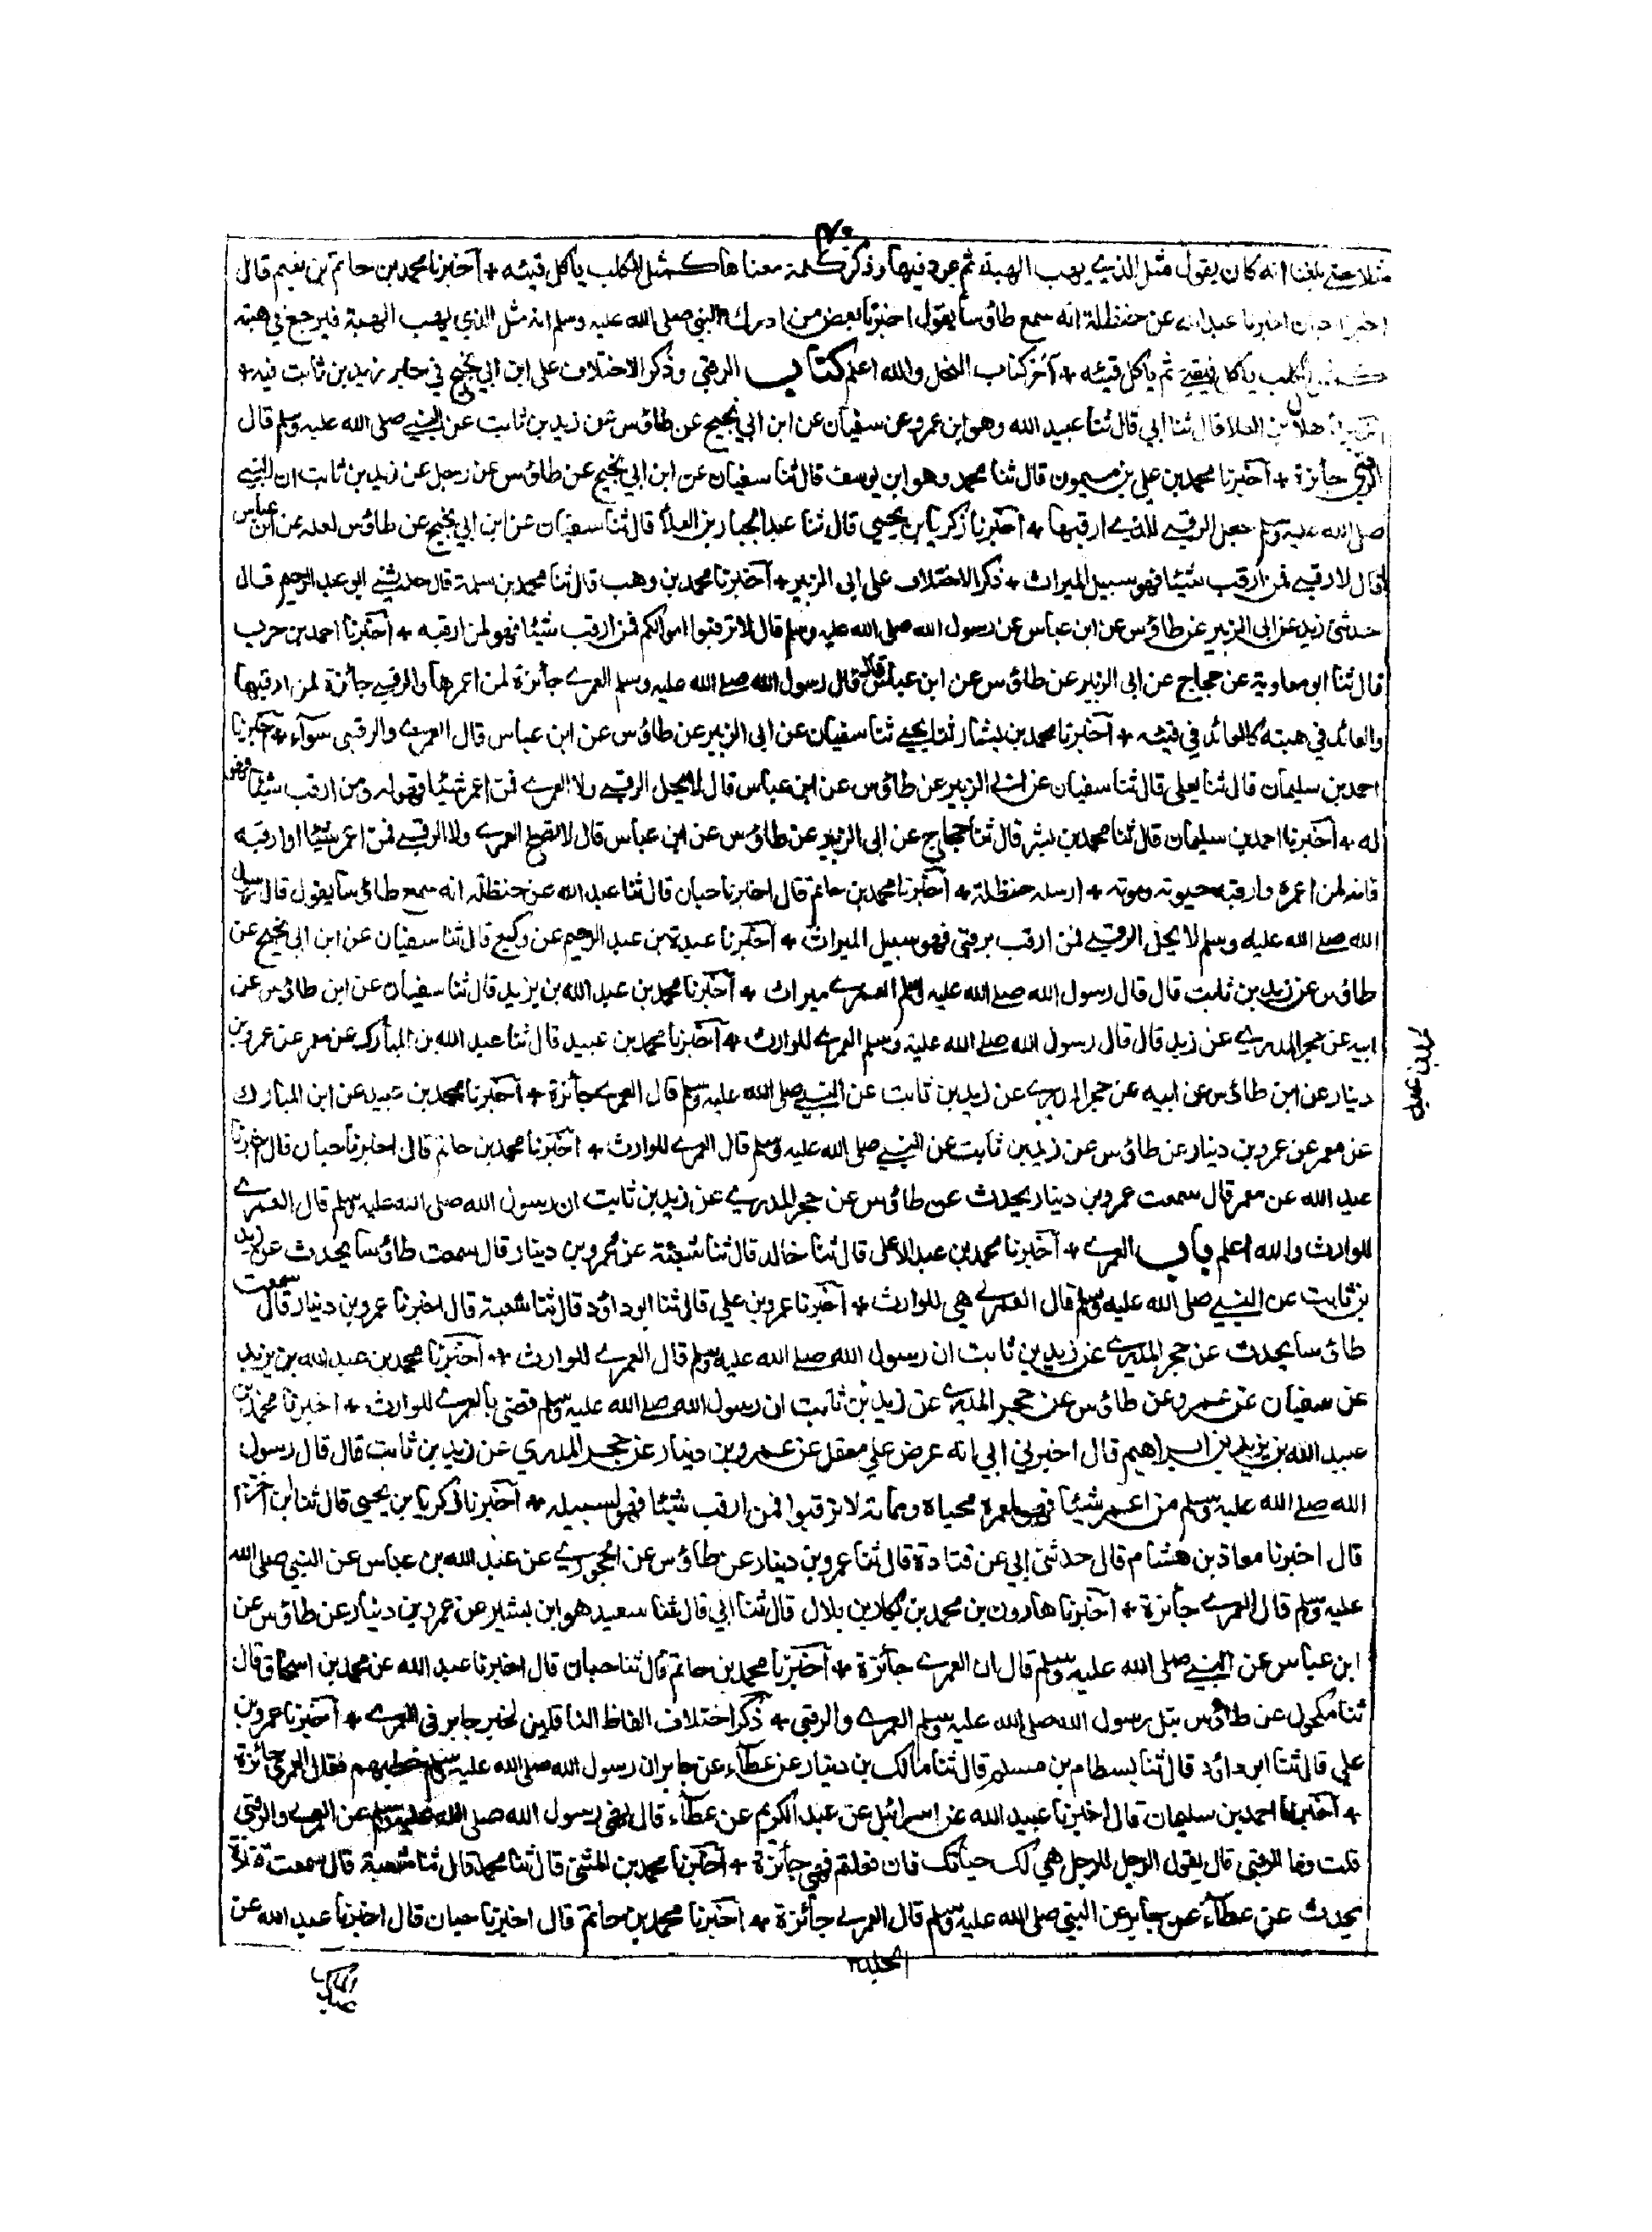 ٧٠
مثلا حتى بلغنا انه كان يقول مثل الذي يهب الهبة ثم يعود فيها وذكر كلمة معناها كمثل الكلب ياكل قيئه + آخبرنا محمد بن حاتم بن نعيم قال
اخبرنا حبان اخبرنا عبد الله عن حنظلة انه سمع طاؤسا يقول اخبرنا بعض من ادرك النبي صلى الله عليه وسلم انه مثل الذي يهب الهبة فيرجع في هبته
كمثل الكلب ياكل فيقئ ثم ياكل قيئه + آخر كتاب النحل والله اعلم كتاب الرقبى وذكر الاختلاف على ابن ابي نجيح في خبر زيد بن ثابت فيه +
هلال بن العلا قال ثنا ابي قال ثنا عبيد الله وهو ابن عمرو عن سفيان عن ابن ابي نجيح عن طاؤس عن زيد بن ثابت عن النبي صلى الله عليه وسلم قال
الرقبى جائزة + آخبرنا محمد بن علي بن ميمون قال ثنا محمد وهو ابن يوسف قال ثنا سفيان عن ابن ابي نجيح عن طاؤس عن رجل عن زيد بن ثابت ان النبي
صلى الله عليه وسلم جعل الرقبى للذي ارقبها + آخبرنا زكريا بن يحيى قال ثنا عبد الجبار بن العلا قال ثنا سفيان عن ابن ابي نجيح عن طاؤس لعله عن ابن عباس
قال لا رقبى فمن ارقب شيئا فهو سبيل الميراث + ذكر الاختلاف على ابى الزبير + آخبرنا محمد بن وهب قال ثنا محمد بن سلمة قال حدثني ابو عبد الرحيم قال
حدثني زيد عن ابى الزبير عن طاؤس عن ابن عباس عن رسول الله صلى الله عليه وسلم قال لا ترقبوا اموالكم فمن ارقب شيئا فهو لمن ارقبه + آخبرنا احمد بن حرب
قال ثنا ابو معاوية عن حجاج عن ابى الزبير عن طاؤس عن ابن عباس قال قال رسول الله صلى الله عليه وسلم العمرى جائزة لمن اعمرها والرقبى جائزة لمن ارقبها
والعائد في هبته كالعائد في قيئه + آخبرنا محمد بن بشار ثنا يحيى ثنا سفيان عن ابى الزبير عن طاؤس عن ابن عباس قال العمرى والرقبى سوآء + آخبرنا
احمد بن سليمان قال ثنا يعلى قال ثنا سفيان عن ابى الزبير عن طاؤس عن ابن عباس قال لا يحل الرقبى ولا العمرى فمن اعمر شيئا فهو له ومن ارقب شيئا فهو
له + آخبرنا احمد بن سليمان قال ثنا محمد بن بشر قال ثنا حجاج عن ابى الزبير عن طاؤس عن ابن عباس قال لا تصلح العمرى ولا الرقبى فمن اعمر شيئا او ارقبه
فانه لمن اعمره وارقبه حيوته وموته + ارسله حنظلة + آخبرنا محمد بن حاتم قال اخبرنا حبان قال ثنا عبد الله عن حنظلة انه سمع طاؤسا يقول قال رسول
الله صلى الله عليه وسلم لا يحل الرقبى فمن ارقب برقبى فهو سبيل الميراث + آخبرنا عبدة بن عبد الرحيم عن وكيع قال ثنا سفيان عن ابن ابي نجيح عن
طاؤس عن زيد بن ثابت قال قال رسول الله صلى الله عليه وسلم العمرى ميراث + آخبرنا محمد بن عبد الله بن يزيد قال ثنا سفيان عن ابن طاؤس عن
ابيه عن حجر المدرى عن زيد قال قال رسول الله صلى الله عليه وسلم العمرى للوارث + آخبرنا محمد بن عبيد قال ثنا عبد الله بن المبارك عن معمر عن عمرو بن
دينار عن ابن طاؤس عن ابيه عن حجر المدرى عن زيد بن ثابت عن النبي صلى الله عليه وسلم قال العمرى جائزة + آخبرنا محمد بن عبيد عن ابن المبارك
عن معمر عن عمرو بن دينار عن طاؤس عن زيد بن ثابت عن النبي صلى الله عليه وسلم قال العمرى للوارث + آخبرنا محمد بن حاتم قال اخبرنا حبان قال اخبرنا
عبد الله عن معمر قال سمعت عمرو بن دينار يحدث عن طاؤس عن حجر المدرى عن زيد بن ثابت ان رسول الله صلى الله عليه وسلم قال العمرى
للوارث والله اعلم باب العمرى + آخبرنا محمد بن عبد الاعلى قال ثنا خالد قال ثنا شعبة عن عمرو بن دينار قال سمعت طاؤسا يحدث عن زيد
بن ثابت عن النبي صلى الله عليه وسلم قال العمرى هي للوارث + آخبرنا عمرو بن علي قال ثنا ابو داؤد قال ثنا شعبة قال اخبرنا عمرو بن دينار قال سمعت
طاؤسا يحدث عن حجر المدرى عن زيد بن ثابت ان رسول الله صلى الله عليه وسلم قال العمرى للوارث + آخبرنا محمد بن عبد الله بن يزيد
عن سفيان عن عمرو عن طاؤس عن حجر المدرى عن زيد بن ثابت ان رسول الله صلى الله عليه وسلم قضى بالعمرى للوارث + اخبرنا محمد بن
عبيد الله بن يزيد بن ابراهيم قال اخبرني ابي انه عرض علي معقل عن عمرو بن دينار عن حجر المدري عن زيد بن ثابت قال قال رسول
الله صلى الله عليه وسلم من اعمر شيئا فهو لمعمره محياه ومماته لا ترقبوا فمن ارقب شيئا فهو لسبيله + آخبرنا زكريا بن يحيى قال ثنا
قال اخبرنا معاذ بن هشام قال حدثني ابي عن قتادة قال ثنا عمرو بن دينار عن طاؤس عن الحجورى عن عبد الله بن عباس عن النبي صلى الله
عليه وسلم قال العمرى جائزة + آخبرنا هارون بن محمد بن بكار بن بلال قال ثنا ابي قال ثنا سعيد هو ابن بشير عن عمرو بن دينار عن طاؤس عن
ابن عباس عن النبي صلى الله عليه وسلم قال ان العمرى جائزة + آخبرنا محمد بن حاتم قال ثنا حبان قال اخبرنا عبد الله عن محمد بن اسحاق قال
ثنا مكحول عن طاؤس بتل رسول الله صلى الله عليه وسلم العمرى والرقبى + ذكر اختلاف الفاظ الناقلين لخبر جابر فى العمرى + آخبرنا عمرو بن
علي قال ثنا ابو داؤد قال ثنا بسطام بن مسلم قال ثنا مالك بن دينار عن عطآء عن جابر ان رسول الله صلى الله عليه وسلم خطبهم فقال العمرى جائزة
+ آخبرنا احمد بن سليمان قال اخبرنا عبيد الله عن اسرائيل عن عبد الكريم عن عطآء قال نهى رسول الله صلى الله عليه وسلم عن العمرى والرقبى
قلت وما الرقبى قال يقول الرجل للرجل هي لك حياتك فان فعلتم فهى جائزة + آخبرنا محمد بن المثنى قال ثنا محمد قال ثنا شعبة قال سمعت قتادة
يحدث عن عطآء عن جابر عن النبي صلى الله عليه وسلم قال العمرى جائزة + آخبرنا محمد بن حاتم قال اخبرنا حبان قال اخبرنا عبد الله عن